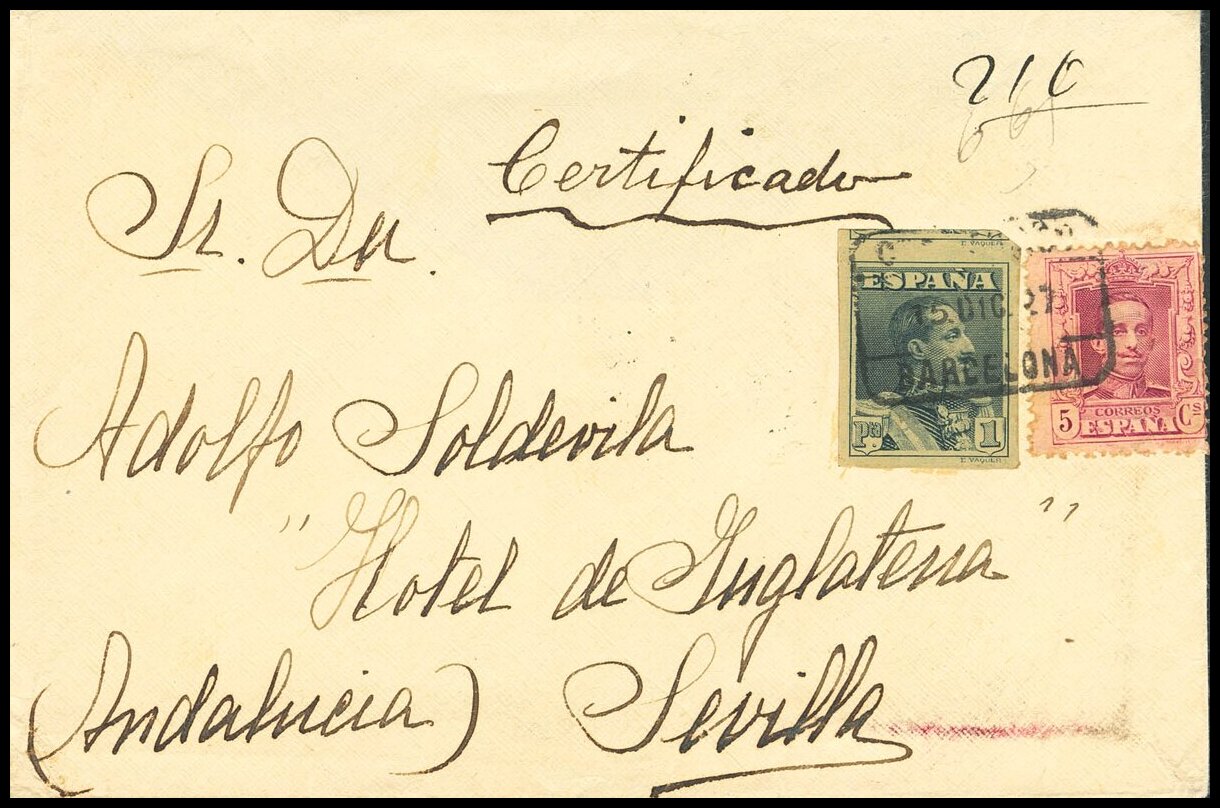 210
Certificado
Sr. Dn.
E. VAQUER
ESPAÑA
15 DIC. 27
BARCELONA
Pta. 1
E. VAQUER
5 Cs
CORREOS
ESPAÑA
Adolfo Soldevila
"Hotel de Inglaterra"
(Andalucia) Sevilla